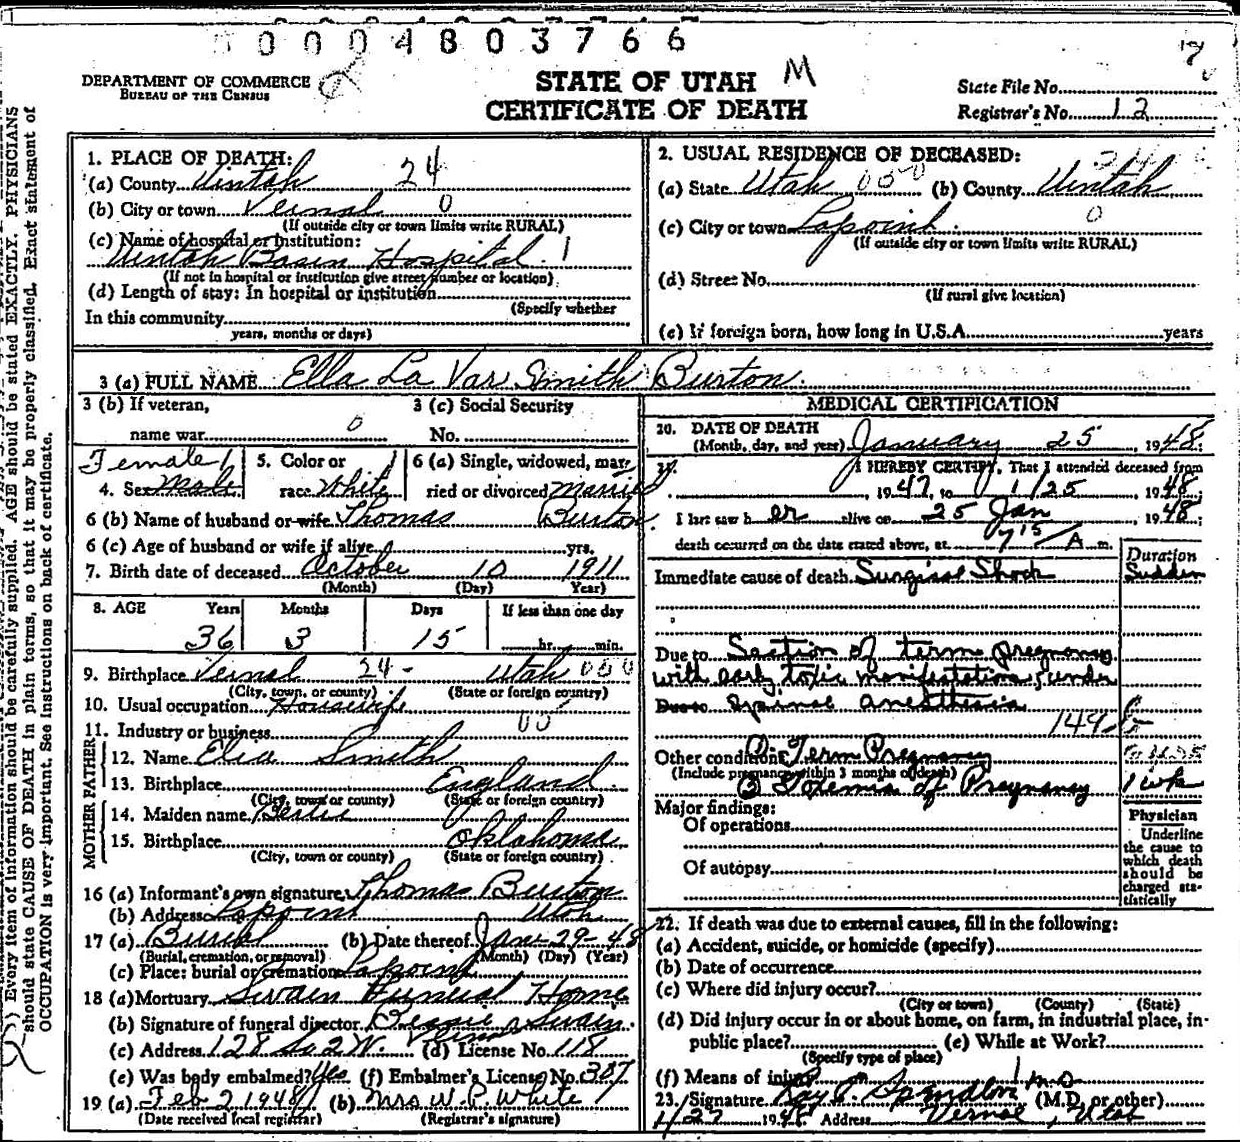 0004803766
DEPARTMENT OF COMMERCE
BUREAU OF THE CENSUS
STATE OF UTAH M
CERTIFICATE OF DEATH
State File No.
Registrar's No. 12
) Every item of information should be carefully supplied. AGE should be stated EXACTLY. PHYSICIANS
should state CAUSE OF DEATH in plain terms, so that it may be properly classified. Exact statement of
OCCUPATION is very important. See instructions on back of certificate.
1. PLACE OF DEATH:
(a) County Uintah 24
(b) City or town Vernal 0
(If outside city or town limits write RURAL)
(c) Name of hospital or institution:
Uintah Basin Hospital. 1
(If not in hospital or institution give street number or location)
(d) Length of stay: In hospital or institution
(Specify whether
In this community
years, months or days)
2. USUAL RESIDENCE OF DECEASED:
(a) State Utah 050 (b) County Uintah
(c) City or town Lapoint. 0
(If outside city or town limits write RURAL)
(d) Street No.
(If rural give location)
(e) If foreign born, how long in U.S.A. years
3 (a) FULL NAME Ella La Var Smith Burton.
3 (b) If veteran,
name war 0
3 (c) Social Security
No.
Female 1
4. Sex Male
5. Color or
race White
6 (a) Single, widowed, mar-
ried or divorced Married
6 (b) Name of husband or wife Thomas Burton.
6 (c) Age of husband or wife if alive yrs.
7. Birth date of deceased October 10 1911
(Month) (Day) Year)
8. AGE Years Months Days If less than one day
36 3 15 hr. min.
9. Birthplace Vernal 24- Utah 050
(City, town, or county) (State or foreign country)
10. Usual occupation Housewife
11. Industry or business
FATHER
12. Name Smith
13. Birthplace England.
(City, town or county) (State or foreign country)
MOTHER
14. Maiden name
15. Birthplace Oklahoma
(City, town or county) (State or foreign country)
16 (a) Informant's own signature Thomas Burton
(b) Address Lapoint Utah
17 (a) Burial (b) Date thereof Jan-29-48
(Burial, cremation, or removal) (Month) (Day) (Year)
(c) Place: burial or cremation Lapoint
18 (a) Mortuary Swain Funeral Home
(b) Signature of funeral director Swain.
(c) Address 128 So 2 W. (d) License No. 118
Vernal
(e) Was body embalmed? Yes (f) Embalmer's License No. 387
19 (a) Feb 2 1948 (b) Mrs W. P. White
(Date received local registrar) (Registrar's signature)
MEDICAL CERTIFICATION
20. DATE OF DEATH
(Month, day, and year) January 25, 1948.
21. I HEREBY CERTIFY, That I attended deceased from
, 1947, to 1/25, 1948;
I last saw h er alive on 25 Jan, 1948;
death occurred on the date stated above, at 7 15 A m.
Duration
Immediate cause of death Surgical Shock Sudden
Due to Section of term pregnancy
with early toxic manifestations, under
Due to Spinal anesthesia
Other conditions ① Term Pregnancy
(Include pregnancy within 3 months of death)
② Toxemia of Pregnancy 1 wk
Major findings:
Of operations
Of autopsy
Physician
Underline
the cause to
which death
should be
charged sta-
tistically
22. If death was due to external causes, fill in the following:
(a) Accident, suicide, or homicide (specify)
(b) Date of occurrence
(c) Where did injury occur?
(City or town) (County) (State)
(d) Did injury occur in or about home, on farm, in industrial place, in-
public place? (e) While at Work?
(Specify type of place)
(f) Means of injury
23. Signature Ray E. Spendlove M.D. (M.D. or other)
1/27 1948 Address Vernal, Utah